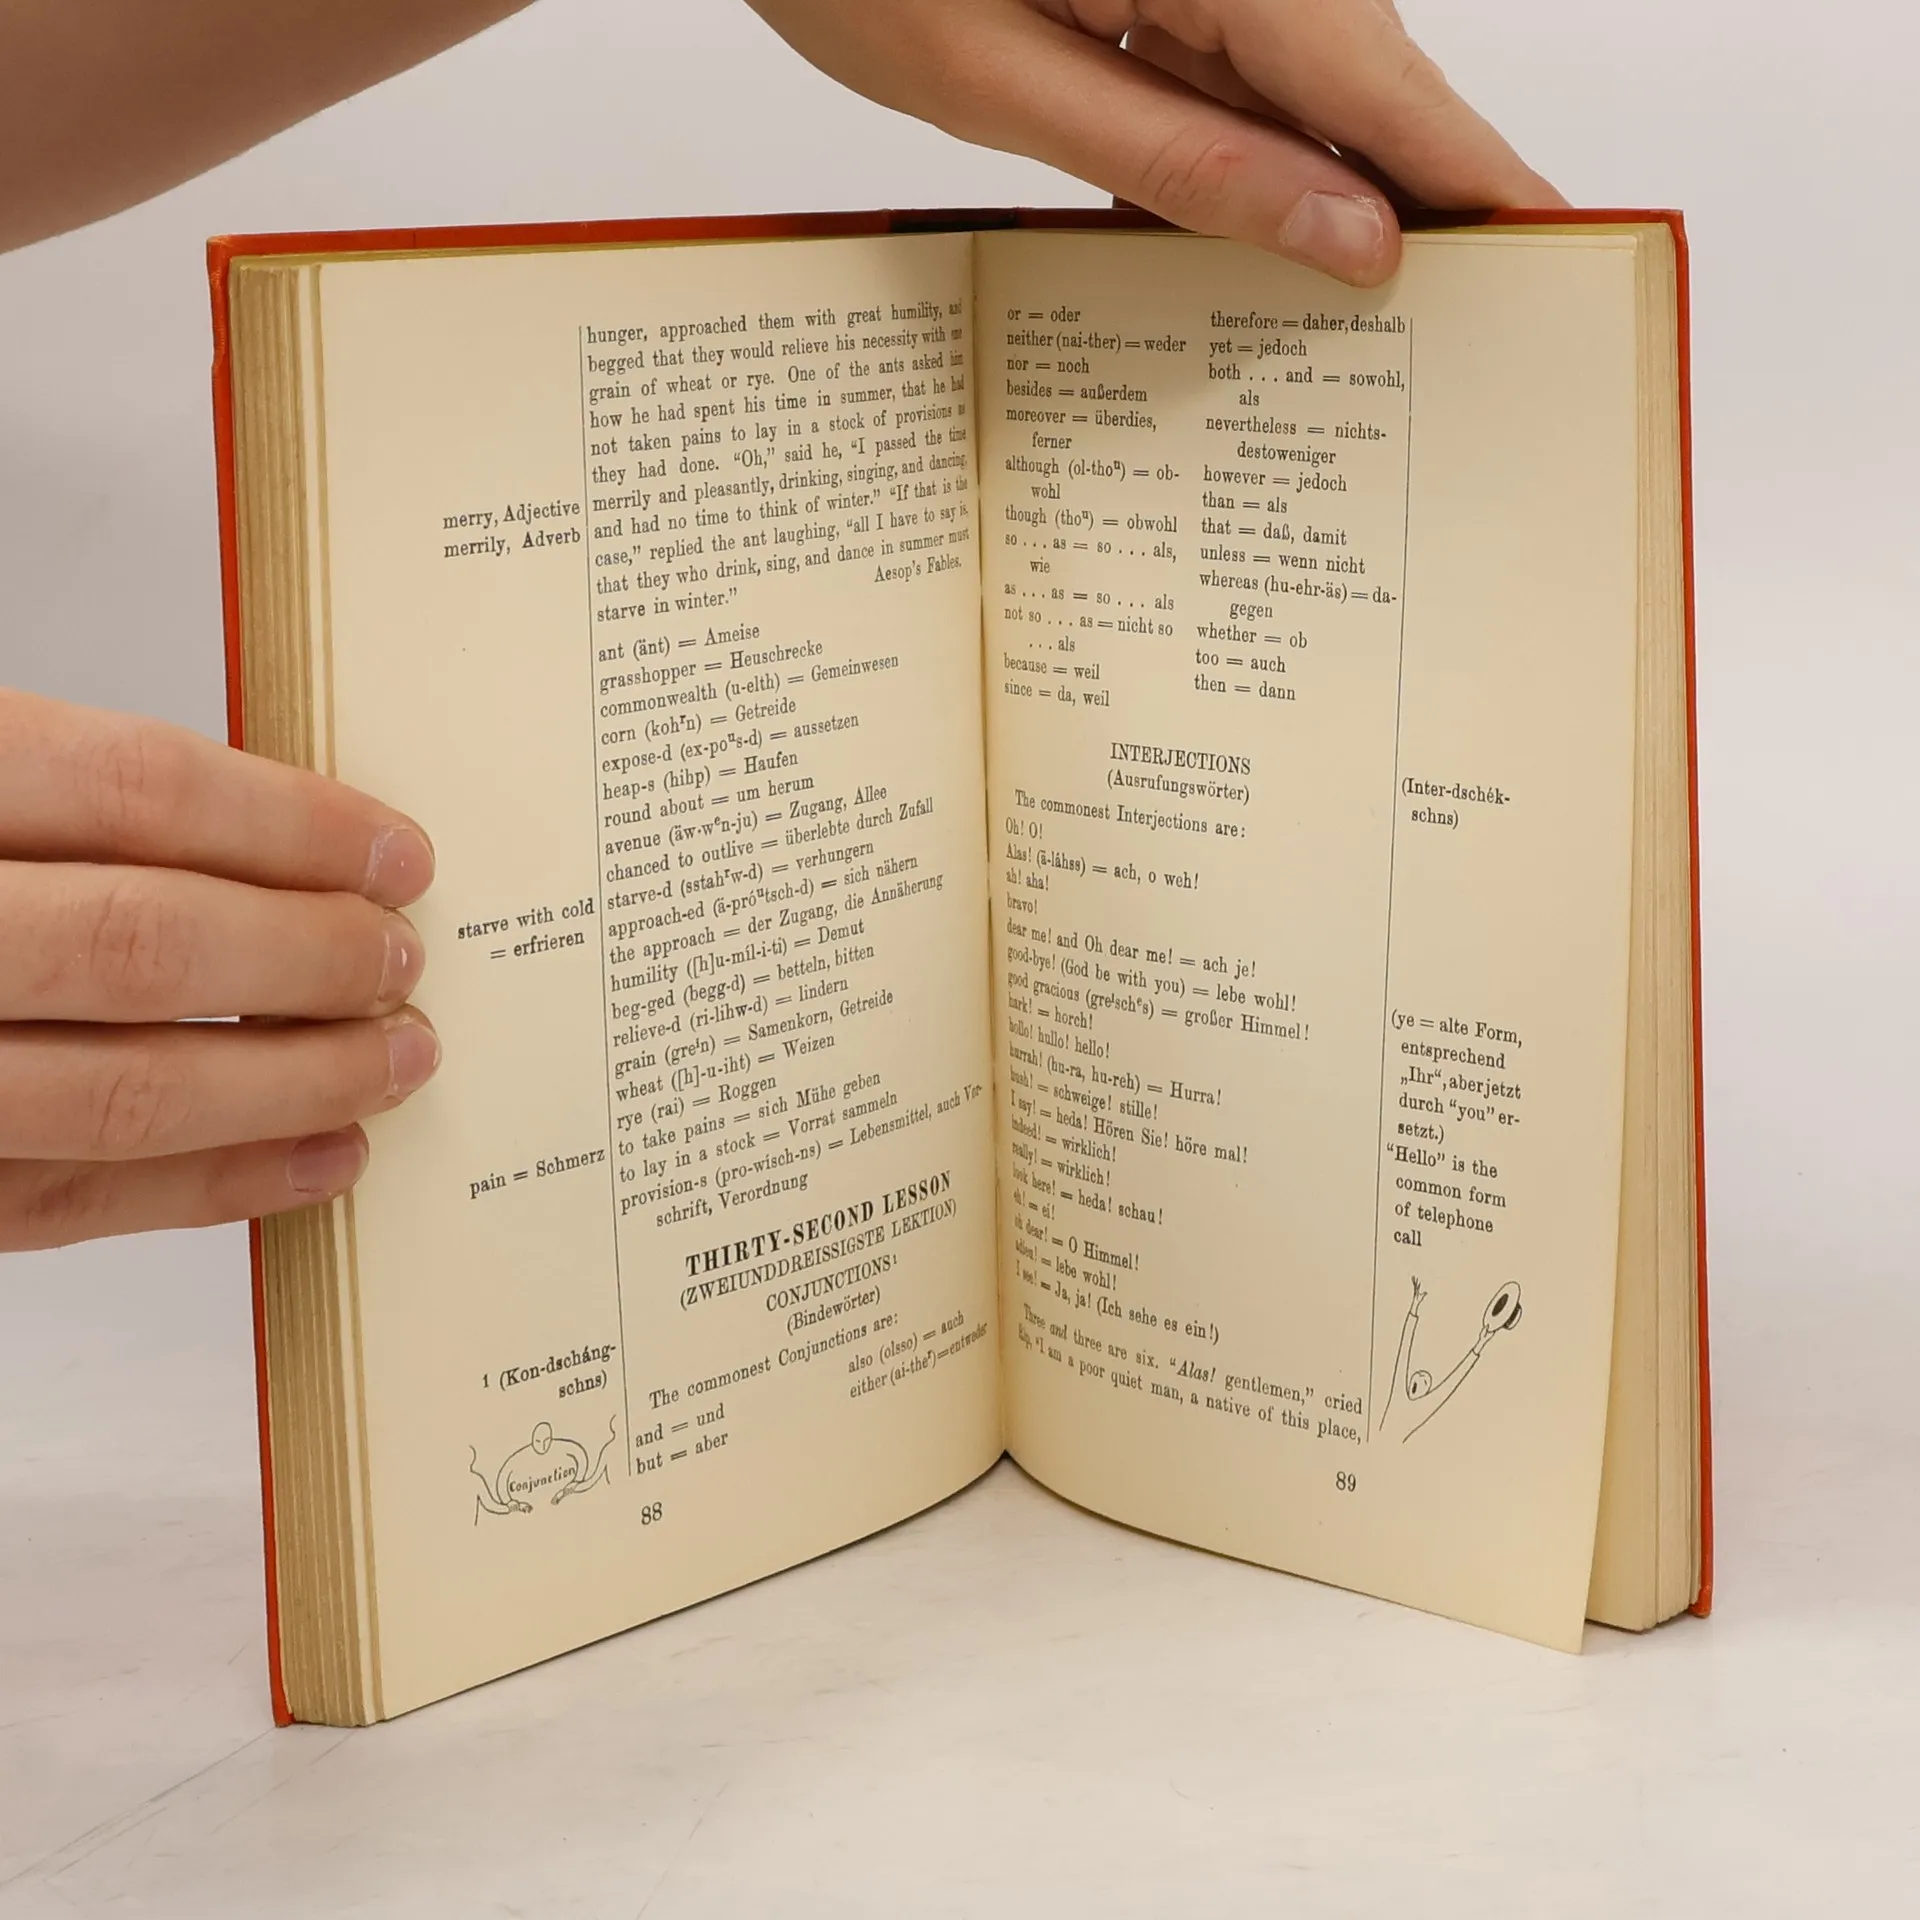 hunger, approached them with great humility, and
begged that they would relieve his necessity with one
grain of wheat or rye. One of the ants asked him
how he had spent his time in summer, that he had
not taken pains to lay in a stock of provisions as
they had done. “Oh,” said he, “I passed the time
merrily and pleasantly, drinking, singing, and dancing,
and had no time to think of winter.” “If that is the
case,” replied the ant laughing, “all I have to say is,
that they who drink, sing, and dance in summer must
starve in winter.”
Aesop's Fables.
merry, Adjective
merrily, Adverb
ant (änt) = Ameise
grasshopper = Heuschrecke
commonwealth (u-elth) = Gemeinwesen
corn (kohʳn) = Getreide
expose-d (ex-poᵘs-d) = aussetzen
heap-s (hihp) = Haufen
round about = um herum
avenue (äw-wᵉn-ju) = Zugang, Allee
chanced to outlive = überlebte durch Zufall
starve-d (sstahʳw-d) = verhungern
approach-ed (ä-próᵘtsch-d) = sich nähern
the approach = der Zugang, die Annäherung
humility ([h]u-míl-i-ti) = Demut
beg-ged (begg-d) = betteln, bitten
relieve-d (ri-lihw-d) = lindern
grain (greⁱn) = Samenkorn, Getreide
wheat ([h]-u-iht) = Weizen
rye (rai) = Roggen
to take pains = sich Mühe geben
to lay in a stock = Vorrat sammeln
provision-s (pro-wísch-ns) = Lebensmittel, auch Vor-
schrift, Verordnung
starve with cold
= erfrieren
pain = Schmerz
THIRTY-SECOND LESSON
(ZWEIUNDDREISSIGSTE LEKTION)
CONJUNCTIONS¹
(Bindewörter)
The commonest Conjunctions are:
and = und
but = aber
also (olsso) = auch
either (ai-theʳ) = entweder
1 (Kon-dscháng-
schns)
Conjunction
88
or = oder
neither (nai-ther) = weder
nor = noch
besides = außerdem
moreover = überdies,
ferner
although (ol-thoᵘ) = ob-
wohl
though (thoᵘ) = obwohl
so . . . as = so . . . als,
wie
as . . . as = so . . . als
not so . . . as = nicht so
. . . als
because = weil
since = da, weil
therefore = daher, deshalb
yet = jedoch
both . . . and = sowohl,
als
nevertheless = nichts-
destoweniger
however = jedoch
than = als
that = daß, damit
unless = wenn nicht
whereas (hu-ehr-äs) = da-
gegen
whether = ob
too = auch
then = dann
INTERJECTIONS
(Ausrufungswörter)
(Inter-dschék-
schns)
The commonest Interjections are:
Oh! O!
Alas! (ä-láhss) = ach, o weh!
ah! aha!
bravo!
dear me! and Oh dear me! = ach je!
good-bye! (God be with you) = lebe wohl!
good gracious (greⁱschᵉs) = großer Himmel!
hark! = horch!
hollo! hullo! hello!
hurrah! (hu-ra, hu-reh) = Hurra!
hush! = schweige! stille!
I say! = heda! Hören Sie! höre mal!
indeed! = wirklich!
really! = wirklich!
look here! = heda! schau!
eh! = ei!
oh dear! = O Himmel!
adieu! = lebe wohl!
I see! = Ja, ja! (Ich sehe es ein!)
(ye = alte Form,
entsprechend
„Ihr“, aber jetzt
durch “you” er-
setzt.)
“Hello” is the
common form
of telephone
call
Three and three are six. “Alas! gentlemen,” cried
Rip, “I am a poor quiet man, a native of this place,
89